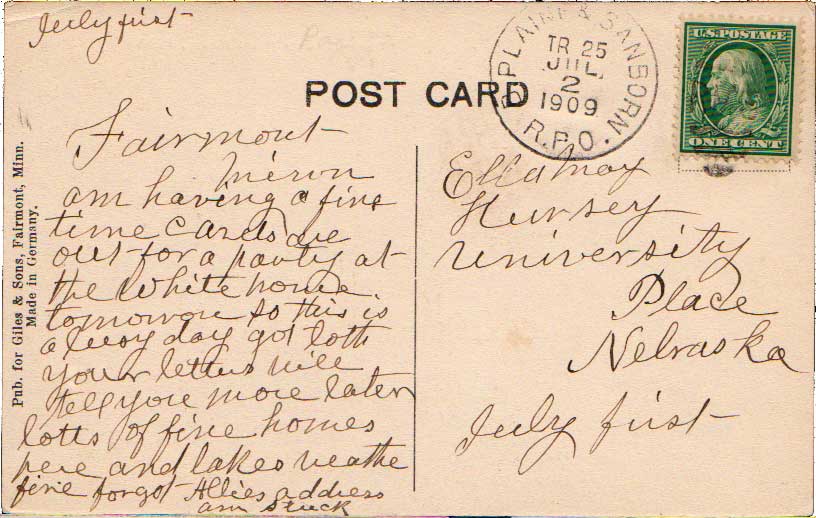 July first
POST CARD
PLAINE & SANBORN.
TR 25
JUL
2
1909
R.P.O.
U.S. POSTAGE
ONE CENT
Pub. for Giles & Sons, Fairmont, Minn.
Made in Germany.
Fairmont
am having a fine
time Cards are
out for a party at
the White home
tomorrow so this is
a busy day got both
your letters will
tell you more later
lotts of fine homes
here and lakes weathe
fine forgot Allies address
am stuck
Ella may
Hursey
University
Place
Nebraska
July first